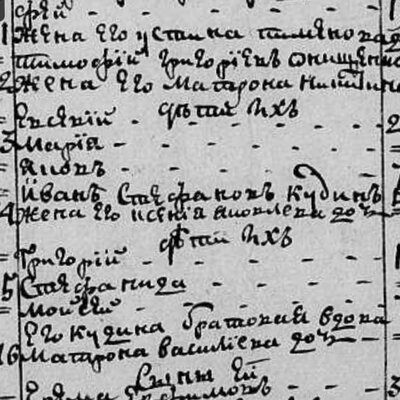 фей
1 Жена его устинна пименова до
Тимофій Григоріевъ Онищенко
2 Жена его Матрона никитина
дѣти ихъ
Евсевій
3 Марія
Яковъ
Иванъ Стефановъ Кудинъ
4 Жена его ксенія яковлева доч
дѣти ихъ
Григорій
5 Стефанида
Мойсей
Его кудина братовая вдова
16 Матрона василіева доч
Сынъ Ей